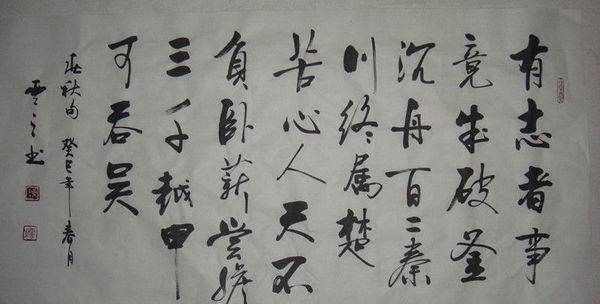 有志者事
竟成破釜
沉舟百二秦
川终属楚
苦心人天不
負卧薪尝胆
三千越甲
可吞吴
春秋句 癸巳年春月
云之书